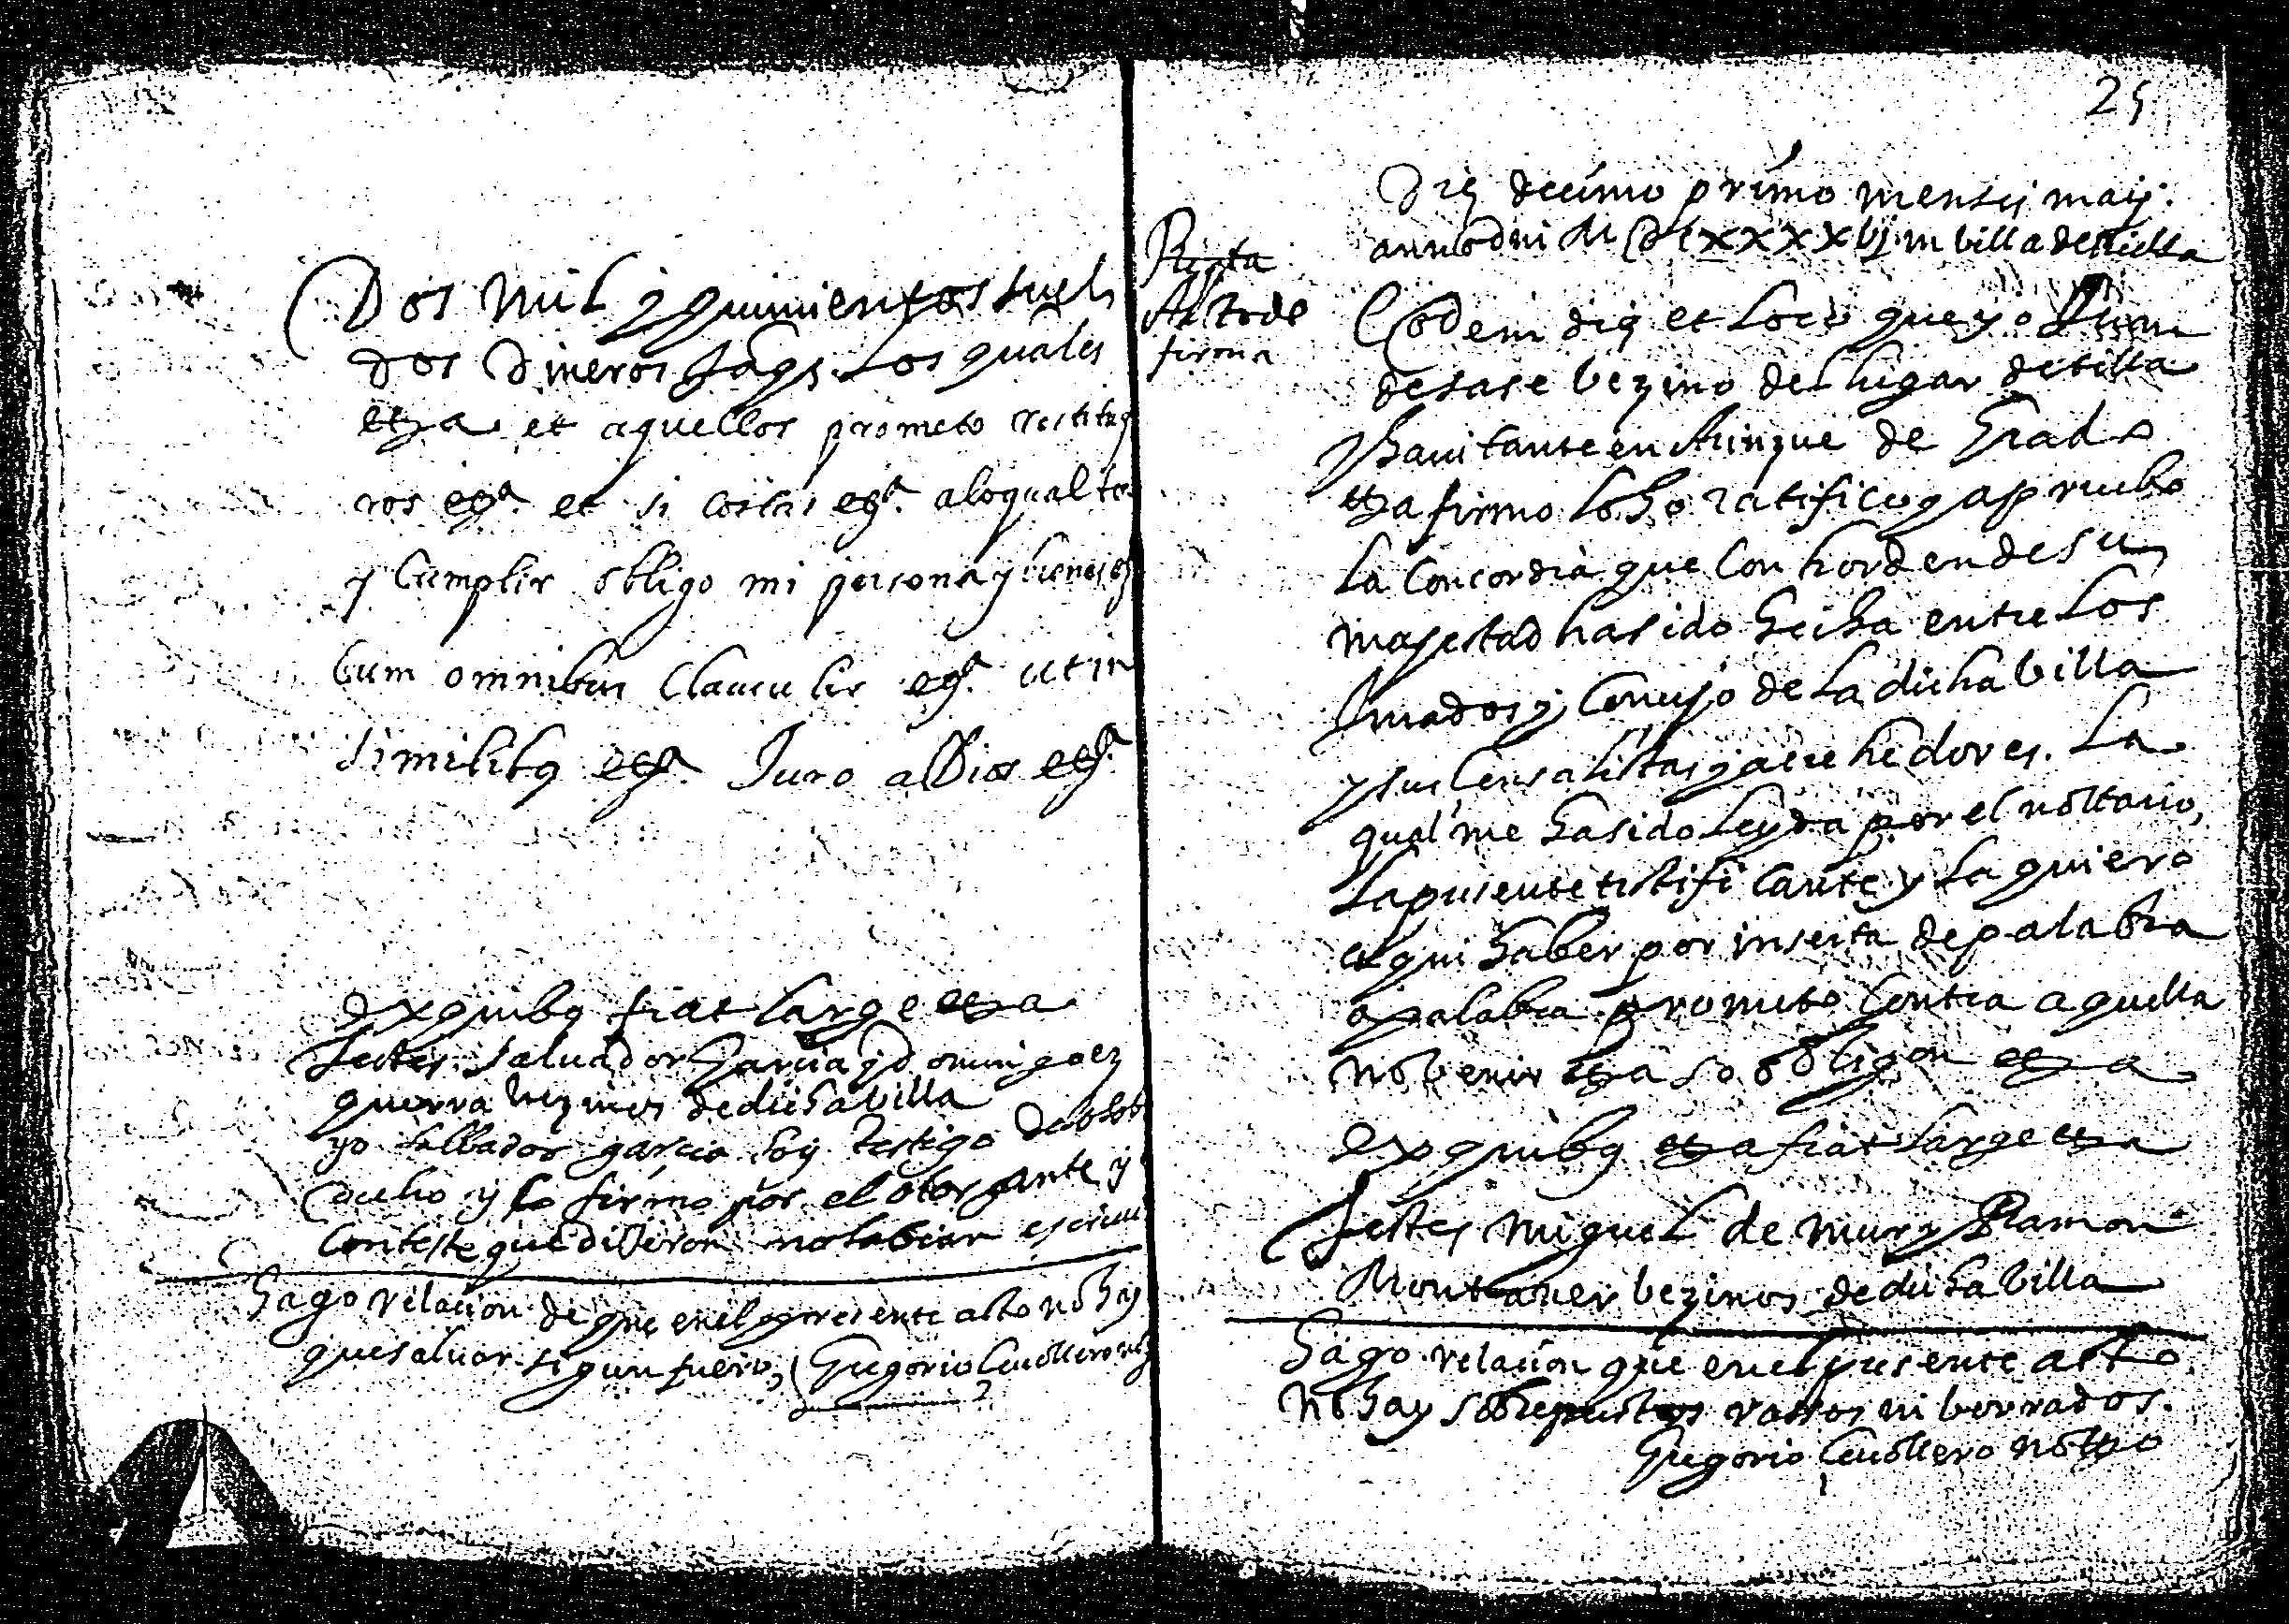 Dos mil y quinientos suel
dos dineros Jaqs. los quales
etza et aquellos prometo restituy
ros etza. et si costas etza. a lo qual te
y cumplir obligo mi persona y bienes etz
cum omnibus clausulis etza. ut in
similibq etza. Juro a Dios etza
exquibq fiat large etza
testes salvador Garcia y domingo
guerra vezinos de dicha villa
yo salbador garcia soy testigo de lo sob
dicho y lo firmo por el otorgante y
conteste que dixeron no sabian escriui
Hago relacion de que en el presente acto no hay
que salvar sigun fuero, Gregorio notº
25
Die decimo primo mensis maij.
anno dni M DC lxxxxvj. in villa de
Acto de
firma
Eodem die et loco que yo Juan
de sase vezino del lugar de
y havitante en de Grado
etza firmo loho ratifico y apruebo
la Concordia que con horden de su
majestad ha sido hecha entre los
Jurados y Concejo de la dicha villa
y sus Censalistas y acrehedores. La
qual me ha sido leyda por el nottario,
la presente testificante y la quiero
aqui haber por inserta de palabra
a palabra prometo contra aquella
no venir etza so obligon etza
exquibq etza fiat large etza
Testes Miguel de mur y Ramon
Montaner vezinos de dicha villa
Hago relacion que en el presente acto
no hay sobrepuestos rassos ni borrados.
Gregorio nottº